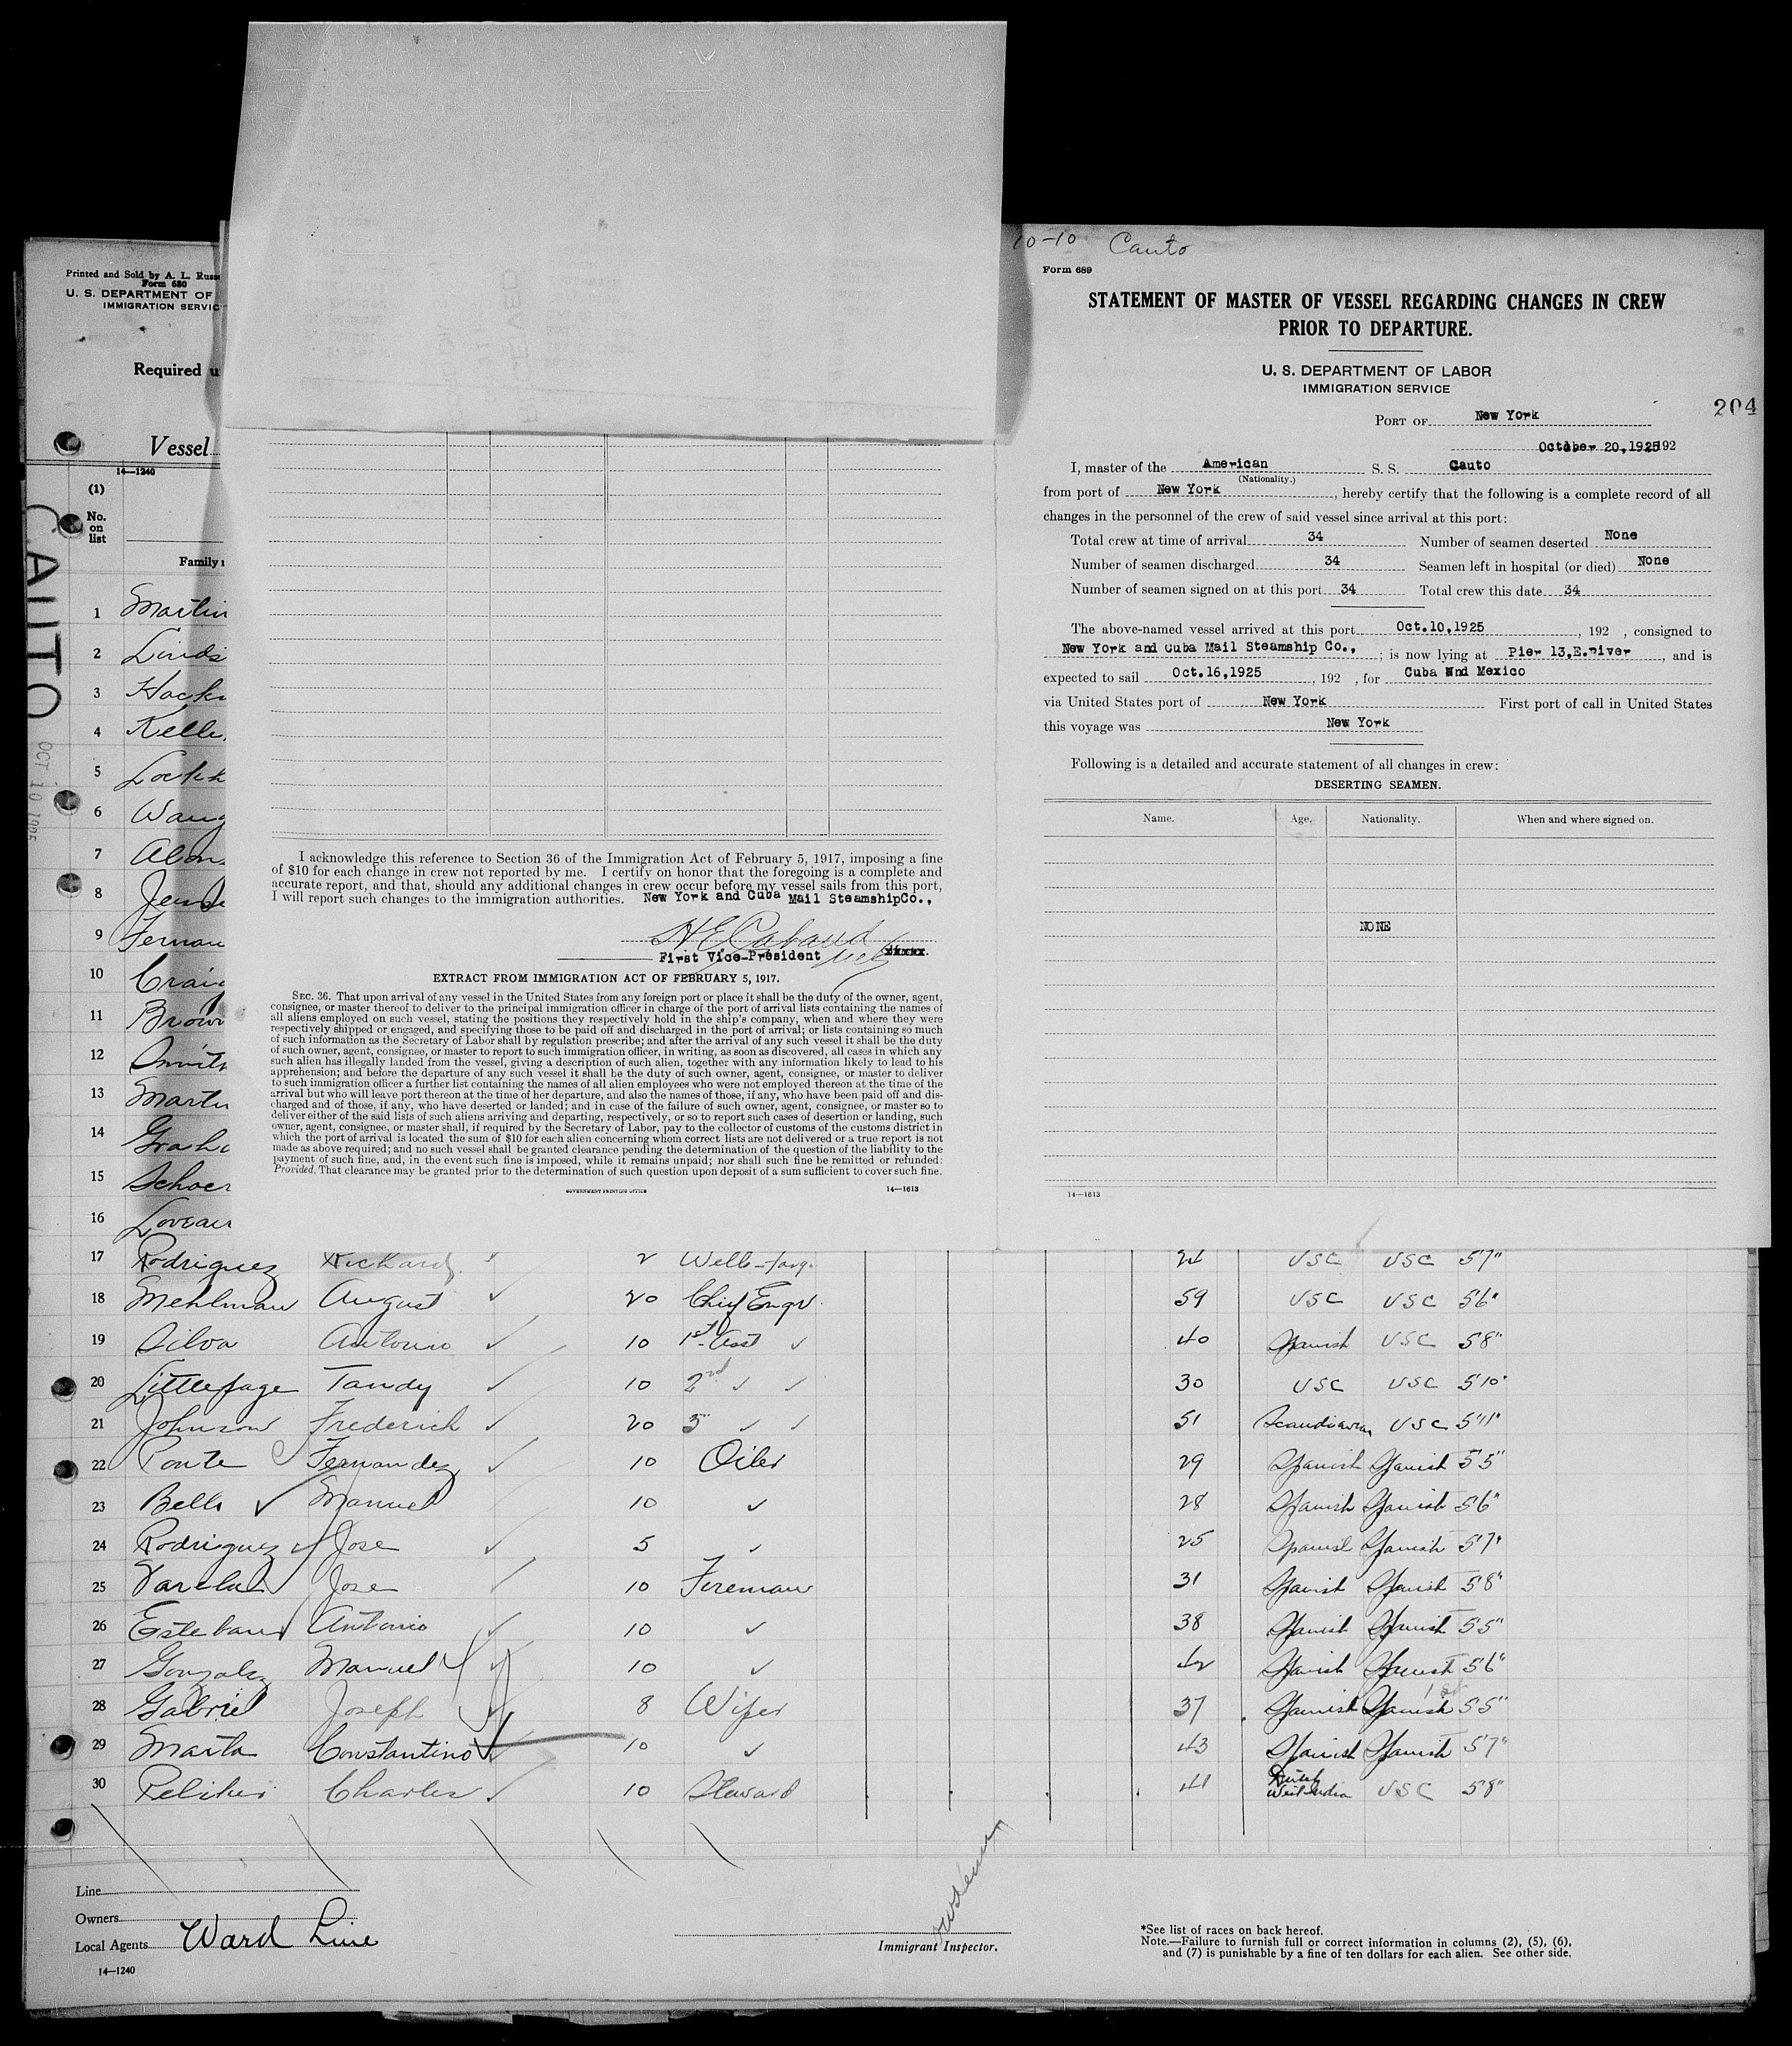 Printed and Sold by A. L. Russ
Form 680
U. S. DEPARTMENT OF
IMMIGRATION SERVIC
Required u
Vessel
14—1240
(1)
No.
on
list
Family
CAUTO
OCT 10 1925
1 Martin
2 Linds
3 Hack
4 Kelle
5 Lockh
6 Waug
7 Alon
8
9 Fernan
10 Craig
11 Brown
12 Smith
13 Marti
14 Graha
15 Schoer
16 Lovear
17 Rodriguez Richard 2 24 USC USC 5'7"
18 Mehlman August 20 Chief Engr. 59 USC USC 5'6"
19 Silva Antonio ✓ 10 1st Asst ✓ 40 Spanish USC 5'8"
20 Littlepage Tandy ✓ 10 2nd ✓ ✓ 30 USC USC 5'10"
21 Johnson Frederick ✓ 20 3 ✓ ✓ 51 Scandinavian USC 5'11"
22 Ponte Fernandez ✓ 10 Oiler 29 Spanish Spanish 5'5"
23 Bello ✓ Manuel 10 ✓ 28 Spanish Spanish 5'6"
24 Rodriguez Jose ✓ 5 ✓ 25 Spanish Spanish 5'7"
25 Varela Jose ✓ 10 Fireman 31 Spanish Spanish 5'8"
26 Esteban Antonio ✓ 10 ✓ 38 Spanish Spanish 5'5"
27 Gonzalez Manuel ✓ 10 ✓ 42 Spanish Spanish 5'6"
28 Gabriel Joseph ✓ 8 Wiper 37 Spanish Spanish 5'5"
29 Marta Constantino ✓ 10 ✓ 43 Spanish Spanish 5'7"
30 Charles ✓ 10 Steward 41 Dutch West India USC 5'8"
Line
Owners
Local Agents Ward Line
14—1240
Immigrant Inspector.
*See list of races on back hereof.
Note.—Failure to furnish full or correct information in columns (2), (5), (6),
and (7) is punishable by a fine of ten dollars for each alien. See other side.
I acknowledge this reference to Section 36 of the Immigration Act of February 5, 1917, imposing a fine
of $10 for each change in crew not reported by me. I certify on honor that the foregoing is a complete and
accurate report, and that, should any additional changes in crew occur before my vessel sails from this port,
I will report such changes to the immigration authorities. New York and Cuba Mail SteamshipCo.,
H E Cabaud
First Vice-President
EXTRACT FROM IMMIGRATION ACT OF FEBRUARY 5, 1917.
SEC. 36. That upon arrival of any vessel in the United States from any foreign port or place it shall be the duty of the owner, agent,
consignee, or master thereof to deliver to the principal immigration officer in charge of the port of arrival lists containing the names of
all aliens employed on such vessel, stating the positions they respectively hold in the ship's company, when and where they were
respectively shipped or engaged, and specifying those to be paid off and discharged in the port of arrival; or lists containing so much
of such information as the Secretary of Labor shall by regulation prescribe; and after the arrival of any such vessel it shall be the duty
of such owner, agent, consignee, or master to report to such immigration officer, in writing, as soon as discovered, all cases in which any
such alien has illegally landed from the vessel, giving a decription of such alien, together with any information likely to lead to his
apprehension; and before the departure of any such vessel it shall be the duty of such owner, agent, consignee, or master to deliver
to such immigration officer a further list containing the names of all alien employees who were not employed thereon at the time of the
arrival but who will leave port thereon at the time of her departure, and also the names of those, if any, who have been paid off and dis-
charged and of those, if any, who have deserted or landed; and in case of the failure of such owner, agent, consignee, or master so to
deliver either of the said lists of such aliens arriving and departing, respectively, or so to report such cases of desertion or landing, such
owner, agent, consignee, or master shall, if required by the Secretary of Labor, pay to the collector of customs of the customs district in
which the port of arrival is located the sum of $10 for each alien concerning whom correct lists are not delivered or a true report is not
made as above required; and no such vessel shall be granted clearance pending the determination of the question of the liability to the
payment of such fine, and, in the event such fine is imposed, while it remains unpaid; nor shall such fine be remitted or refunded:
Provided, That clearance may be granted prior to the determination of such question upon deposit of a sum sufficient to cover such fine.
GOVERNMENT PRINTING OFFICE
14—1613
10-10 Cauto
Form 689
STATEMENT OF MASTER OF VESSEL REGARDING CHANGES IN CREW
PRIOR TO DEPARTURE.
U. S. DEPARTMENT OF LABOR
IMMIGRATION SERVICE
204
PORT OF New York
October 20,1925 192
I, master of the American S. S. Cauto
(Nationality.)
from port of New York, hereby certify that the following is a complete record of all
changes in the personnel of the crew of said vessel since arrival at this port:
Total crew at time of arrival 34 Number of seamen deserted None
Number of seamen discharged 34 Seamen left in hospital (or died) None
Number of seamen signed on at this port 34 Total crew this date 34
The above-named vessel arrived at this port Oct.10,1925, 192 , consigned to
New York and Cuba Mail Steamship Co., ; is now lying at Pier 13,E.River, and is
expected to sail Oct.16,1925, 192 , for Cuba and Mexico
via United States port of New York First port of call in United States
this voyage was New York
Following is a detailed and accurate statement of all changes in crew:
DESERTING SEAMEN.
Name. Age. Nationality. When and where signed on.
NONE
14—1613